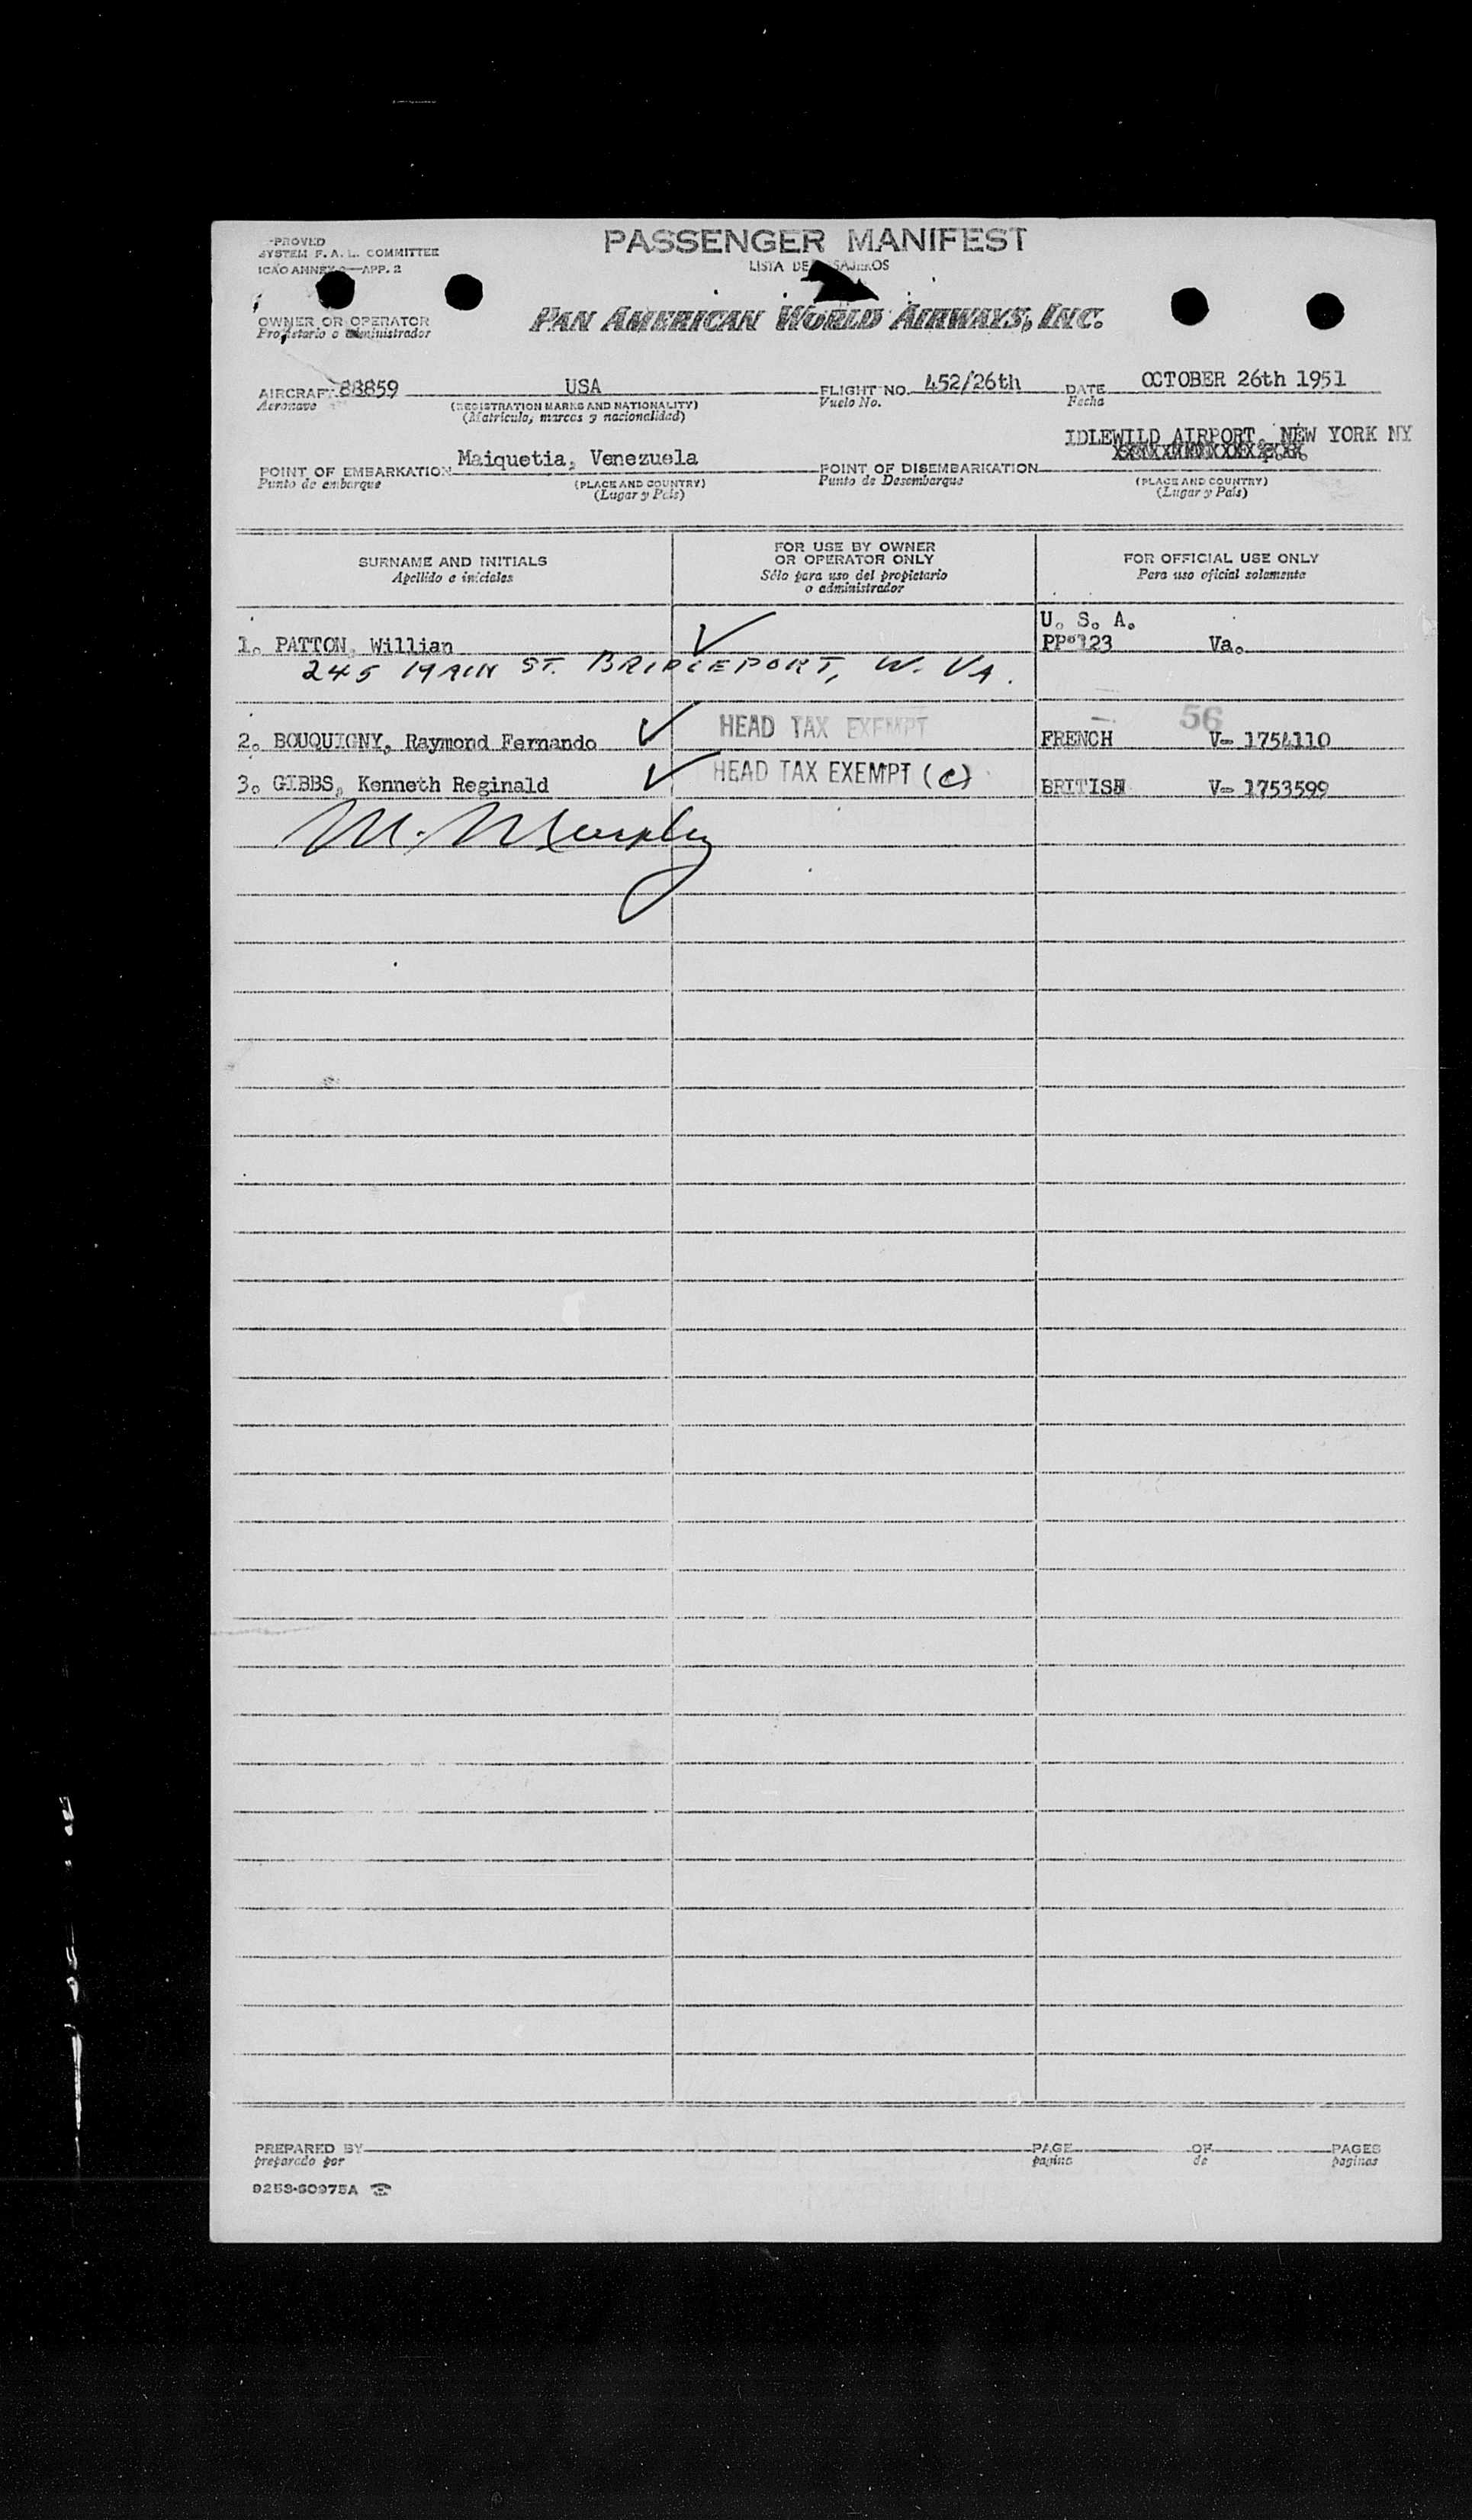 PASSENGER MANIFEST
-PROVED
SYSTEM F. A. L. COMMITTEE
LISTA DE SAJEROS
ICAO ANNEX APP. 2
OWNER OR OPERATOR
Propietario o administrador
PAN AMERICAN WORLD AIRWAYS, INC.
AIRCRAFT 88859 USA FLIGHT NO. 452/26th DATE OCTOBER 26th 1951
Aeronave (REGISTRATION MARKS AND NATIONALITY) Vuelo No. Fecha
(Matrícula, marcas y nacionalidad)
IDLEWILD AIRPORT, NEW YORK NY
POINT OF EMBARKATION Maiquetia, Venezuela POINT OF DISEMBARKATION
Punto de embarque (PLACE AND COUNTRY) Punto de Desembarque (PLACE AND COUNTRY)
(Lugar y País) (Lugar y País)
SURNAME AND INITIALS
Apellido e iniciales
FOR USE BY OWNER
OR OPERATOR ONLY
Sólo para uso del propietario
o administrador
FOR OFFICIAL USE ONLY
Para uso oficial solamente
U. S. A.
1. PATTON, Willian PP 123 Va.
245 MAIN ST. BRIDGEPORT, W. VA.
56
2. BOUQUIGNY, Raymond Fernando HEAD TAX EXEMPT FRENCH V- 1754110
3. GIBBS, Kenneth Reginald HEAD TAX EXEMPT (c) BRITISH V- 1753599
M. Murphy
PREPARED BY PAGE OF PAGES
preparado por pagina de paginas
9253-60975A